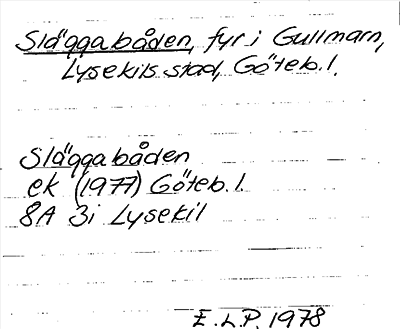 Släggabåden, fyr i Gullmarn,
Lysekils stad, Göteb. l.
Släggabåden
ek (1977) Göteb. l.
8A 3i Lysekil
E.L.P. 1978